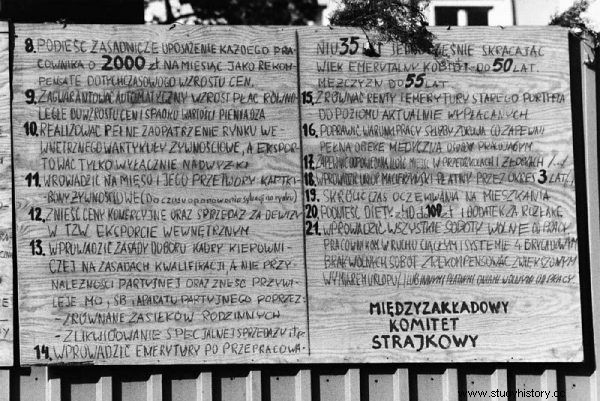 8. PODIEŚĆ ZASADNICZE UPOSAŻENIE KAŻDEGO PRA
COWNIKA O 2000 zł NA MIESIĄC JAKO REKOM-
PENSATĘ DOTYCHCZASOWEGO WZROSTU CEN.
9. ZAGWARANTOWAĆ AUTOMATYCZNY WZROST PŁAC RÓWNO-
LEGLE DO WZROSTU CEN I SPADKU WARTOŚCI PIENIĄDZA
10. REALIZOWAĆ PEŁNE ZAOPATRZENIE RYNKU WE-
WNĘTRZNEGO W ARTYKUŁY ŻYWNOŚCIOWE, A EKSPOR-
TOWAĆ TYLKO WYŁĄCZNIE NADWYŻKI
11. WROWADZIĆ NA MIĘSO I JEGO PRZETWORY KARTKI-
BONY ŻYWNOŚCIOWE (do czasu opanowania sytuacji na rynku)
12. ZNIEŚĆ CENY KOMERCYJNE ORAZ SPRZEDAŻ ZA DEWIZY
W TZW. EKSPORCIE WEWNĘTRZNYM
13. WPROWADZIĆ ZASADY DOBORU KADRY KIEROWNI-
CZEJ NA ZASADACH KWALIFIKACJI A NIE PRZY-
NALEŻNOŚCI PARTYJNEJ ORAZ ZNIEŚĆ PRZYWI-
LEJE MO, SB i APARATU PARTYJNEGO POPRZEZ:
- ZRÓWNANIE ZASIŁKÓW RODZINNYCH
- ZLIKWIDOWANIE SPECJALNEJ SPRZEDAŻY itp.
14. WPROWADZIĆ EMERYTURY PO PRZEPRACOWA-
NIU 35 LAT JEDNOCZEŚNIE SKRACAJĄC
WIEK EMERYTALNY KOBIET DO 50 LAT.
MĘŻCZYZN DO 55 LAT.
15. ZRÓWNAĆ RENTY I EMERYTURY STAREGO PORTFELA
DO POZIOMU AKTUALNIE WYPŁACANYCH
16. POPRAWIĆ WARUNKI PRACY SŁUŻBY ZDROWIA CO ZAPEWNI
PEŁNĄ OPIEKĘ MEDYCZNĄ OSOBOM PRACUJĄCYM
17. ZAPEWNIĆ ODPOWIEDNIĄ ILOŚĆ MIEJSC W PRZEDSZKOLACH I ŻŁOBKACH
18. WPROWADZIĆ URLOP MACIERZYŃSKI PŁATNY PRZEZ OKRES 3 LAT
19. SKRÓCIĆ CZAS OCZEKIWANIA NA MIESZKANIA
20. PODNIEŚĆ DIETY Z 40 zł DO 100 zł I DODATEK ZA ROZŁĄKĘ
21. WPROWADZIĆ WSZYSTKIE SOBOTY WOLNE OD PRACY
PRACOWNIKOM W RUCHU CIĄGŁYM I SYSTEMIE 4 BRYGADOWYM
BRAK WOLNYCH SOBÓT ZREKOMPENSOWAĆ ZWIĘKSZONYM
WYMIAREM URLOPU LUB INNYMI PŁATNYMI DNIAMI WOLNYMI OD PRACY.
MIĘDZYZAKŁADOWY
KOMITET
STRAJKOWY
www.studyhistory.co